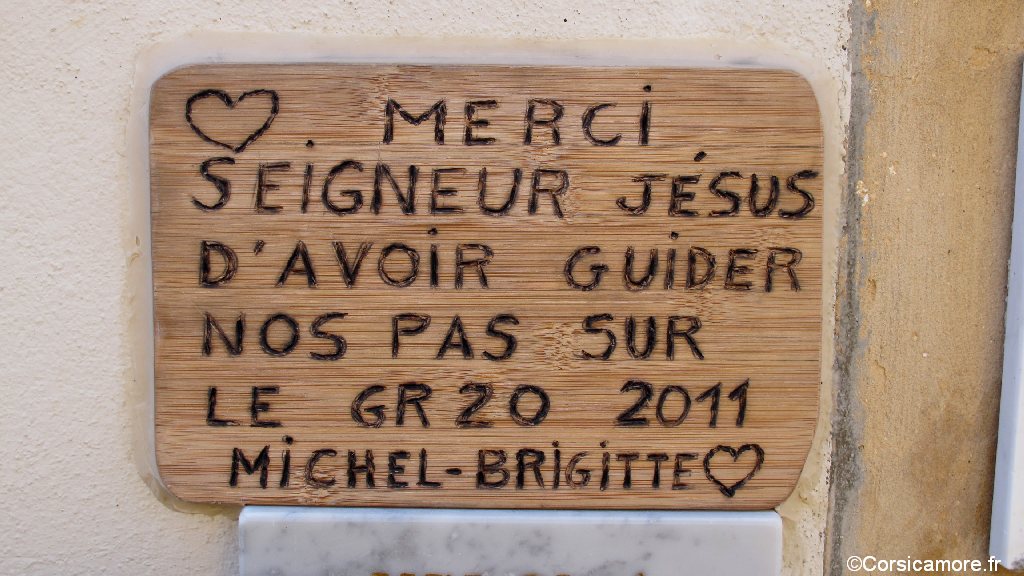 MERCI
SEIGNEUR JÉSUS
D'AVOIR GUIDER
NOS PAS SUR
LE GR20 2011
MICHEL-BRIGITTE
©Corsicamore.fr